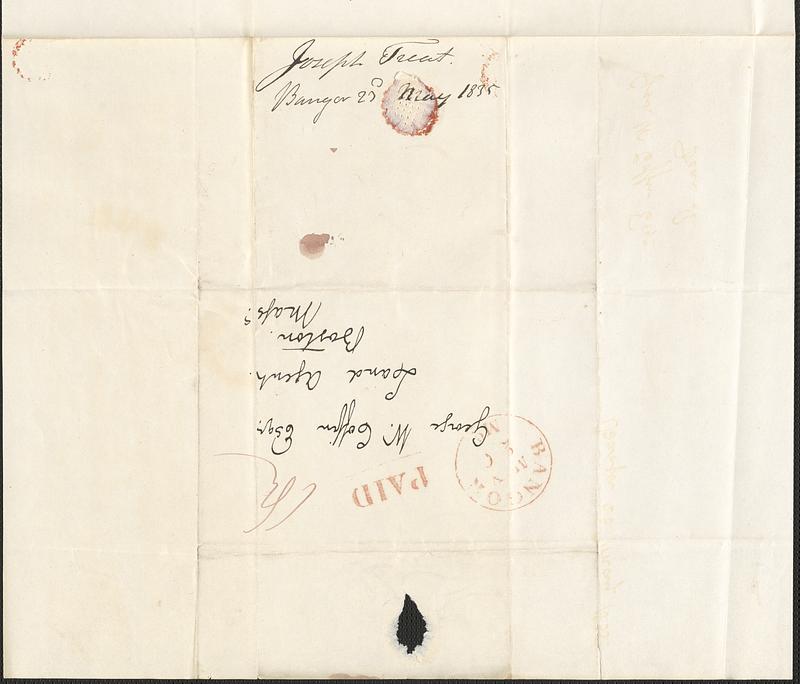 Joseph Treat.
Bangor 23d May 1835
George W. Coffin Esqr.
Land Agent.
Boston.
Mass.
PAID
BANGOR
MAY
Me.